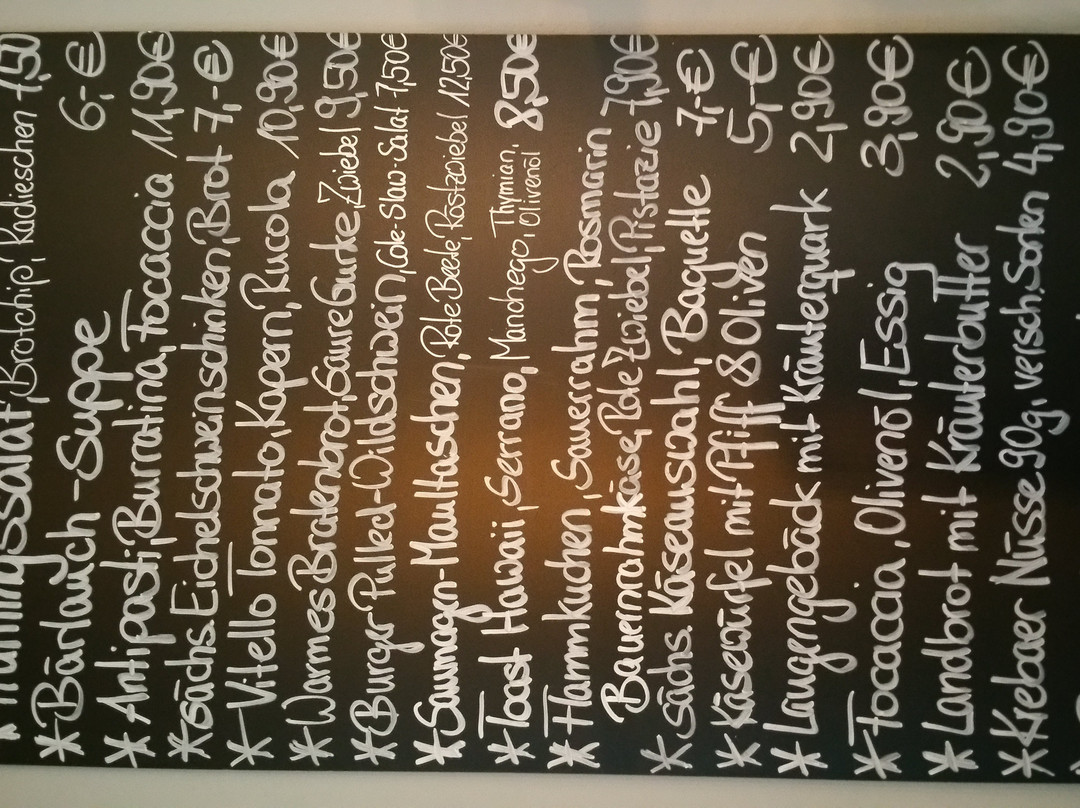 Frühlingssalat, Brotchip, Radieschen 7,50
* Bärlauch-Suppe 6,-€
* Antipasti, Burratina, Foccaccia 11,90€
* sächs. Eichelschweinschinken, Brot 7,-€
* Vitello Tonnato, Kapern, Rucola 10,90€
* Warmes Bratenbrot, Saure Gurke, Zwiebel 9,50€
* Burger Pulled-Wildschwein, Cole-Slaw-Salat 7,50€
* Saumagen-Maultaschen, Rote Beete, Röstzwiebel 12,50€
* Toast Hawaii, Serrano, Manchego, Thymian, Olivenöl 8,50€
* Flammkuchen, Sauerrahm, Rosmarin
Bauernrahmkäse, Rote Zwiebel, Pistazie 7,90€
* Sächs. Käseauswahl, Baguette 7,-€
* Käsewürfel mit Pfiff & Oliven 5,-€
* Laugengebäck mit Kräuterquark 2,90€
* Foccaccia, Olivenöl, Essig 3,90€
* Landbrot mit Kräuterbutter 2,90€
* Krebaer Nüsse 90g, versch. Sorten 4,90€